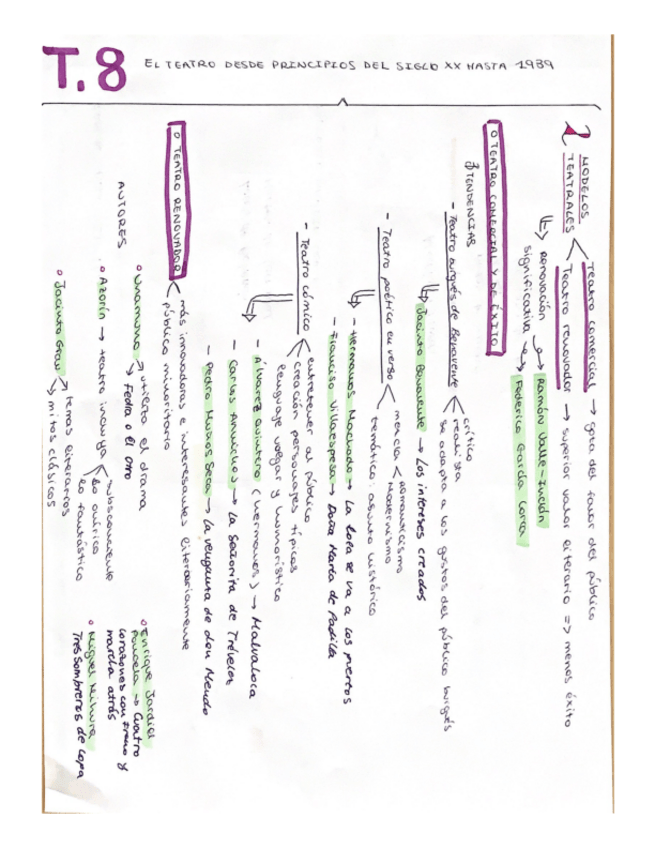 T.8 EL TEATRO DESDE PRINCIPIOS DEL SIGLO XX HASTA 1939
2 MODELOS TEATRALES
Teatro comercial → goza del favor del público
Teatro renovador → superior valor literario => menos éxito
Renovación significativa
Ramón Valle-Inclán
Federico García Lorca
O TEATRO COMERCIAL Y DE ÉXITO
3 TENDENCIAS
- Teatro burgués de Benavente
crítico
realista
se adapta a los gustos del público burgués
Jacinto Benavente → Los intereses creados
- Teatro poético en verso
mezcla < Romanticismo
Modernismo
temática: asunto histórico
- Hermanos Machado → La Lola se va a los puertos
- Francisco Villaespesa → Doña María de Padilla
- Teatro cómico
entretener al público
creación personajes típicos
lenguaje vulgar y humorístico
- Álvarez Quintero (hermanos) → Malvaloca
- Carlos Arniches → La señorita de Trévelez
- Pedro Muñoz Seca → La venganza de don Mendo
O TEATRO RENOVADOR
más innovadoras e interesantes literariamente
público minoritario
AUTORES
o Unamuno
utiliza el drama
Fedra o El otro
o Azorín → teatro incluya
subsconsciente
lo onírico
lo fantástico
o Jacinto Grau
temas literarios
mitos clásicos
o Enrique Jardiel
Poncela → Cuatro
corazones con freno y
marcha atrás
o Miguel Mihura
Tres sombreros de copa